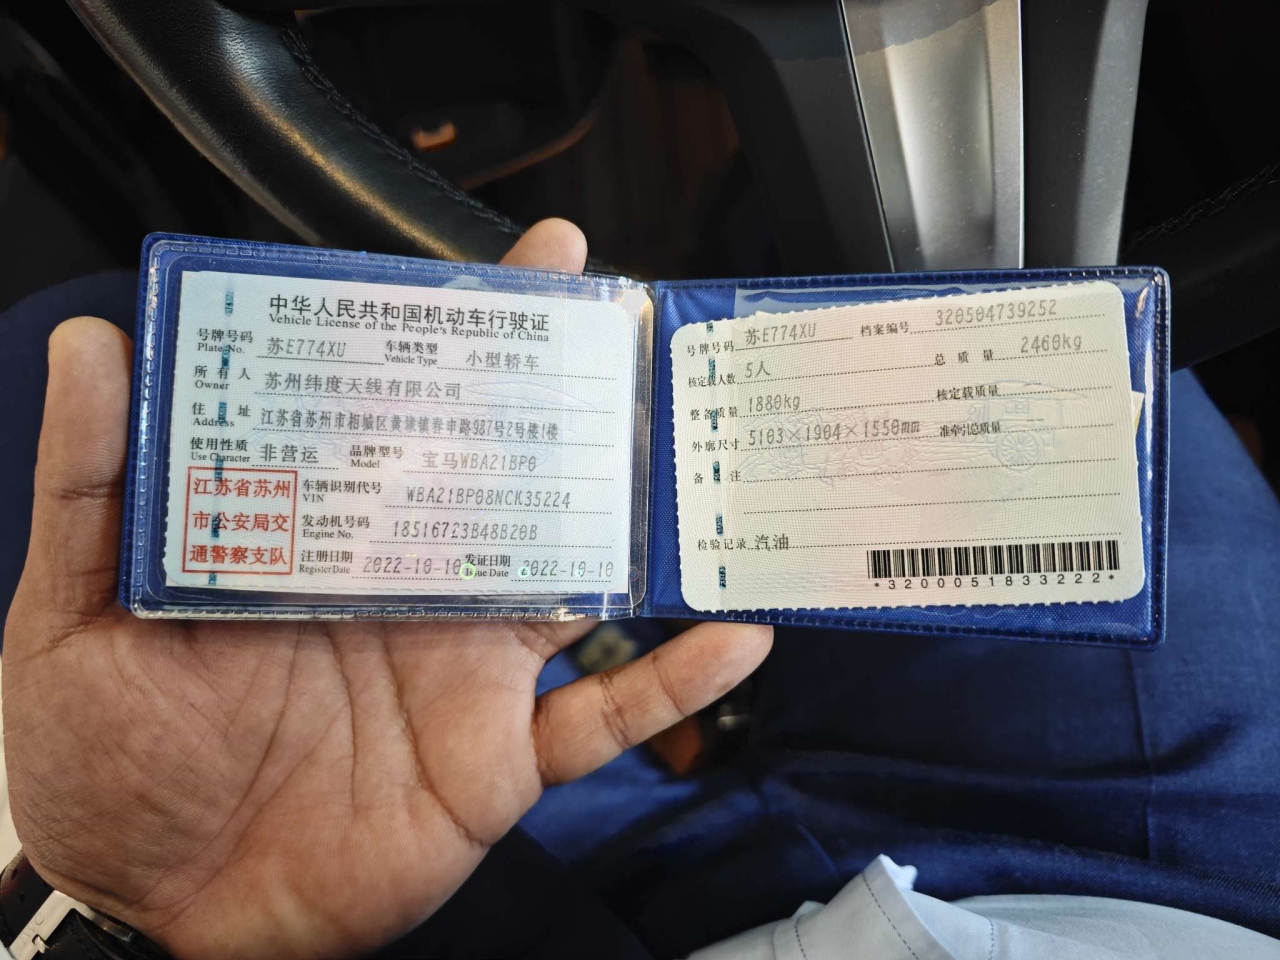 中华人民共和国机动车行驶证
Vehicle License of the People's Republic of China
号牌号码 苏E774XU 车辆类型 小型轿车
Plate No. Vehicle Type
所有人 苏州纬度天线有限公司
Owner
住址 江苏省苏州市相城区黄埭镇春申路987号2号楼1楼
Address
使用性质 非营运 品牌型号 宝马WBA21BP0
Use Character Model
江苏省苏州
市公安局交
通警察支队
车辆识别代号 WBA21BP08NCK35224
VIN
发动机号码 18516723B48B20B
Engine No.
注册日期 2022-10-10 发证日期 2022-10-10
Register Date Issue Date
号牌号码 苏E774XU 档案编号 320504739252
核定载人数 5人 总质量 2460kg
整备质量 1880kg 核定载质量
外廓尺寸 5103×1904×1550mm 准牵引总质量
备注
检验记录 汽油
*3200051833222*